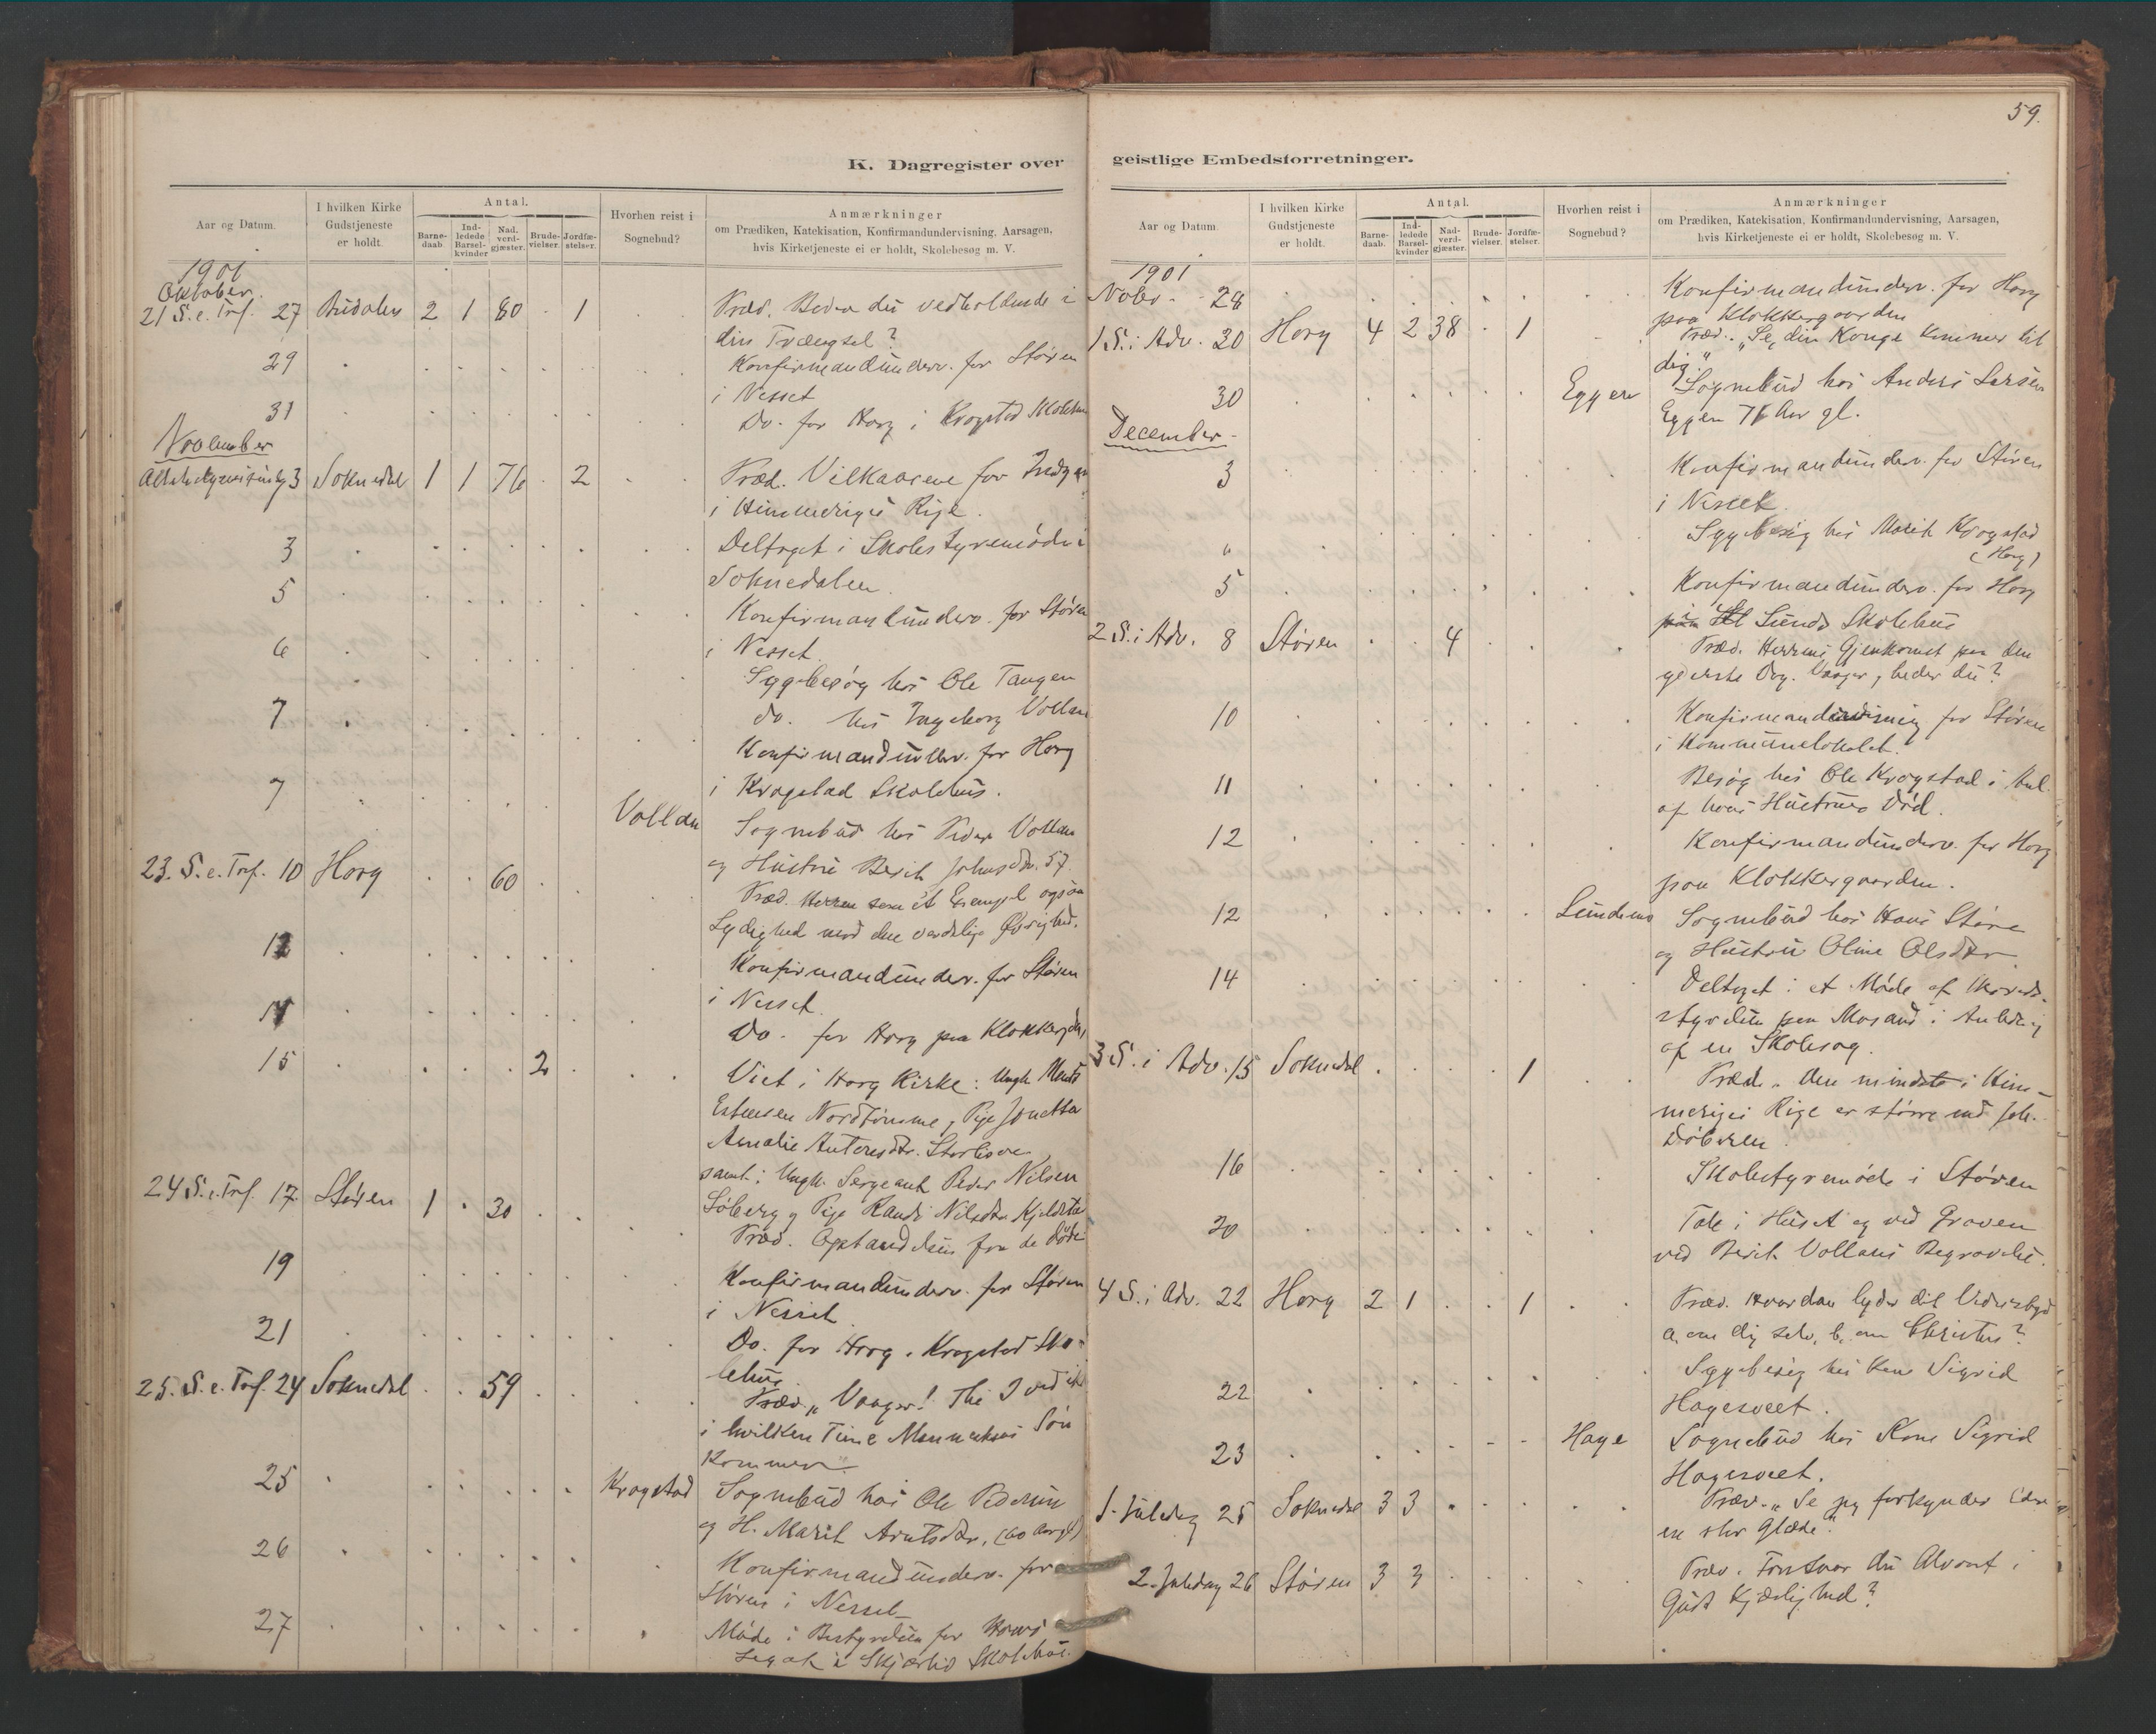 59.
K. Dagregister over
Aar og Datum.
I hvilken Kirke
Gudstjeneste
er holdt.
Antal.
Barne-
daab.
Ind-
ledede
Barsel-
kvinder
Nad.
verd-
gjæster.
Brude-
vielser.
Jordfæ-
stelser.
Hvorhen reist i
Sognebud?
Anmærkninger
om Prædiken, Katekisation, Konfirmandundervisning, Aarsagen,
hvis Kirketjeneste ei er holdt, Skolebesøg m. V.
1901
Oktober.
21 S. e. Tref. 27 Budalen 2 1 80 1 Præd. Beder du vedholdende i
din Trængsel?
29 Konfirmandunderv. for Støren
i Nesset
31 Do. for Horg i Krogstad Skolehus
November
3 Soknedal 1 1 76 2 Præd. Vilkaarene for Indgang
i Himmeriges Rige.
3 Deltaget i Skolestyremøde i
Soknedalen.
5 Konfirmandunderv. for Støren
i Nesset.
6 Sygebesøg hos Ole Tangen
do. hos Ingeborg Vollan
7 Konfirmandunderv. for Horg
i Krogstad Skolehus.
7 Vollan Sognebud hos Peder Vollan
og Hustru Berit Johnsdtr. 57.
23. S. e. Tref. 10 Horg 60 Præd. Herren som et Exempel ogsaa
Lydighed mod den verdslige Øvrighed.
12 Konfirmandunderv. for Støren
i Nesset.
14 Do. for Horg paa Klokkergden
15 2 Viet i Horg Kirke: Ungk. Ments
Estensen Nordtømme, Pige Jonetta
Amalie Antonsdtr. Storlisve
samt: Ungk. Sergeant Peder Nilsen
Søberg og Pige Randi Nilsdtr.
24 S. e. Tref. 17 Støren 1 30 Præd. Opstandelsen fra de døde
19 Konfirmandunderv. for Støren
i Nesset
21 Do. for Horg. Krogstad Sko-
lehus.
25. S. e. Tref. 24 Soknedal 59 Præd. „Vaager! Thi I ved ikke
i hvilken Time Menneskens Søn
kommer".
25 Krogstad Sognebud hos Ole Pedersen
og H. Marit Arntsdtr. (60 Aar gl)
26 Konfirmandunderv. for
Støren i Nesset
27 Møde i Bestyrelsen for
Legat i Skjærlid Skolehus.
geistlige Embedsforretninger.
Aar og Datum.
I hvilken Kirke
Gudstjeneste
er holdt.
Antal.
Barne-
daab.
Ind-
ledede
Barsel-
kvinder
Nad-
verd-
gjæster.
Brude-
vielser.
Jordfæ-
stelser.
Hvorhen reist i
Sognebud?
Anmærkninger
om Prædiken, Katekisation, Konfirmandundervisning, Aarsagen,
hvis Kirketjeneste ei er holdt, Skolebesøg m. V.
1901
Novbr. 28 Konfirmandunderv. for Horg
paa Klokkergaarden
1 S. i Adv. 30 Horg 4 2 38 1 Præd. „Se, din Konge kommer til
dig."
30 Eggen Sognebud hos Anders Larsen
Eggen 71 Aar gl.
December
3 Konfirmandunderv. for Støren
i Nesset
" Sygebesøg hos Marit Krogstad
(Horg)
5 Konfirmandunderv. for Horg
Lunds Skolehus
2 S. i Adv. 8 Støren 4 Præd. Herrens Gjenkomst paa den
yderste Dag. Vaager, beder du?
10 Konfirmandundervisning for Støren
i Kommunelokalet.
11 Besøg hos Ole Krogstad i Anl.
af hans Hustrues Død.
12 Konfirmandunderv. for Horg
paa Klokkergaarden.
12 Sognebud hos Hans Støre
og Hustru Oline Olsdtr
14 Deltaget i et Møde af Herreds-
styrelsen paa Mosand i Anledng
af en Skolesag.
3 S. i Adv. 15 Soknedal 1 Præd. Den mindste i Him-
meriges Rige er større end Joh.
Døberen.
16 Skolestyremøde i Støren
20 Tale i Huset og ved Graven
ved Berit Vollans Begravelse.
4 S. i Adv. 22 Horg 2 1 1 Præd. Hvordan lyder dit Vidnesbyrd
a, om dig selv, b, om Christus?
22 Sygebesøg hos Kone Sigrid
Hagesveet.
23 Hage Sognebud hos Kone Sigrid
Hagesveet.
1. Juledag 25 Soknedal 3 3 Præd. „Se jeg forkynder Eder
en stor Glæde".
2. Juledag 26 Støren 3 3 Præd. Forstaar du Alvoret i
Guds Kjærlighed?